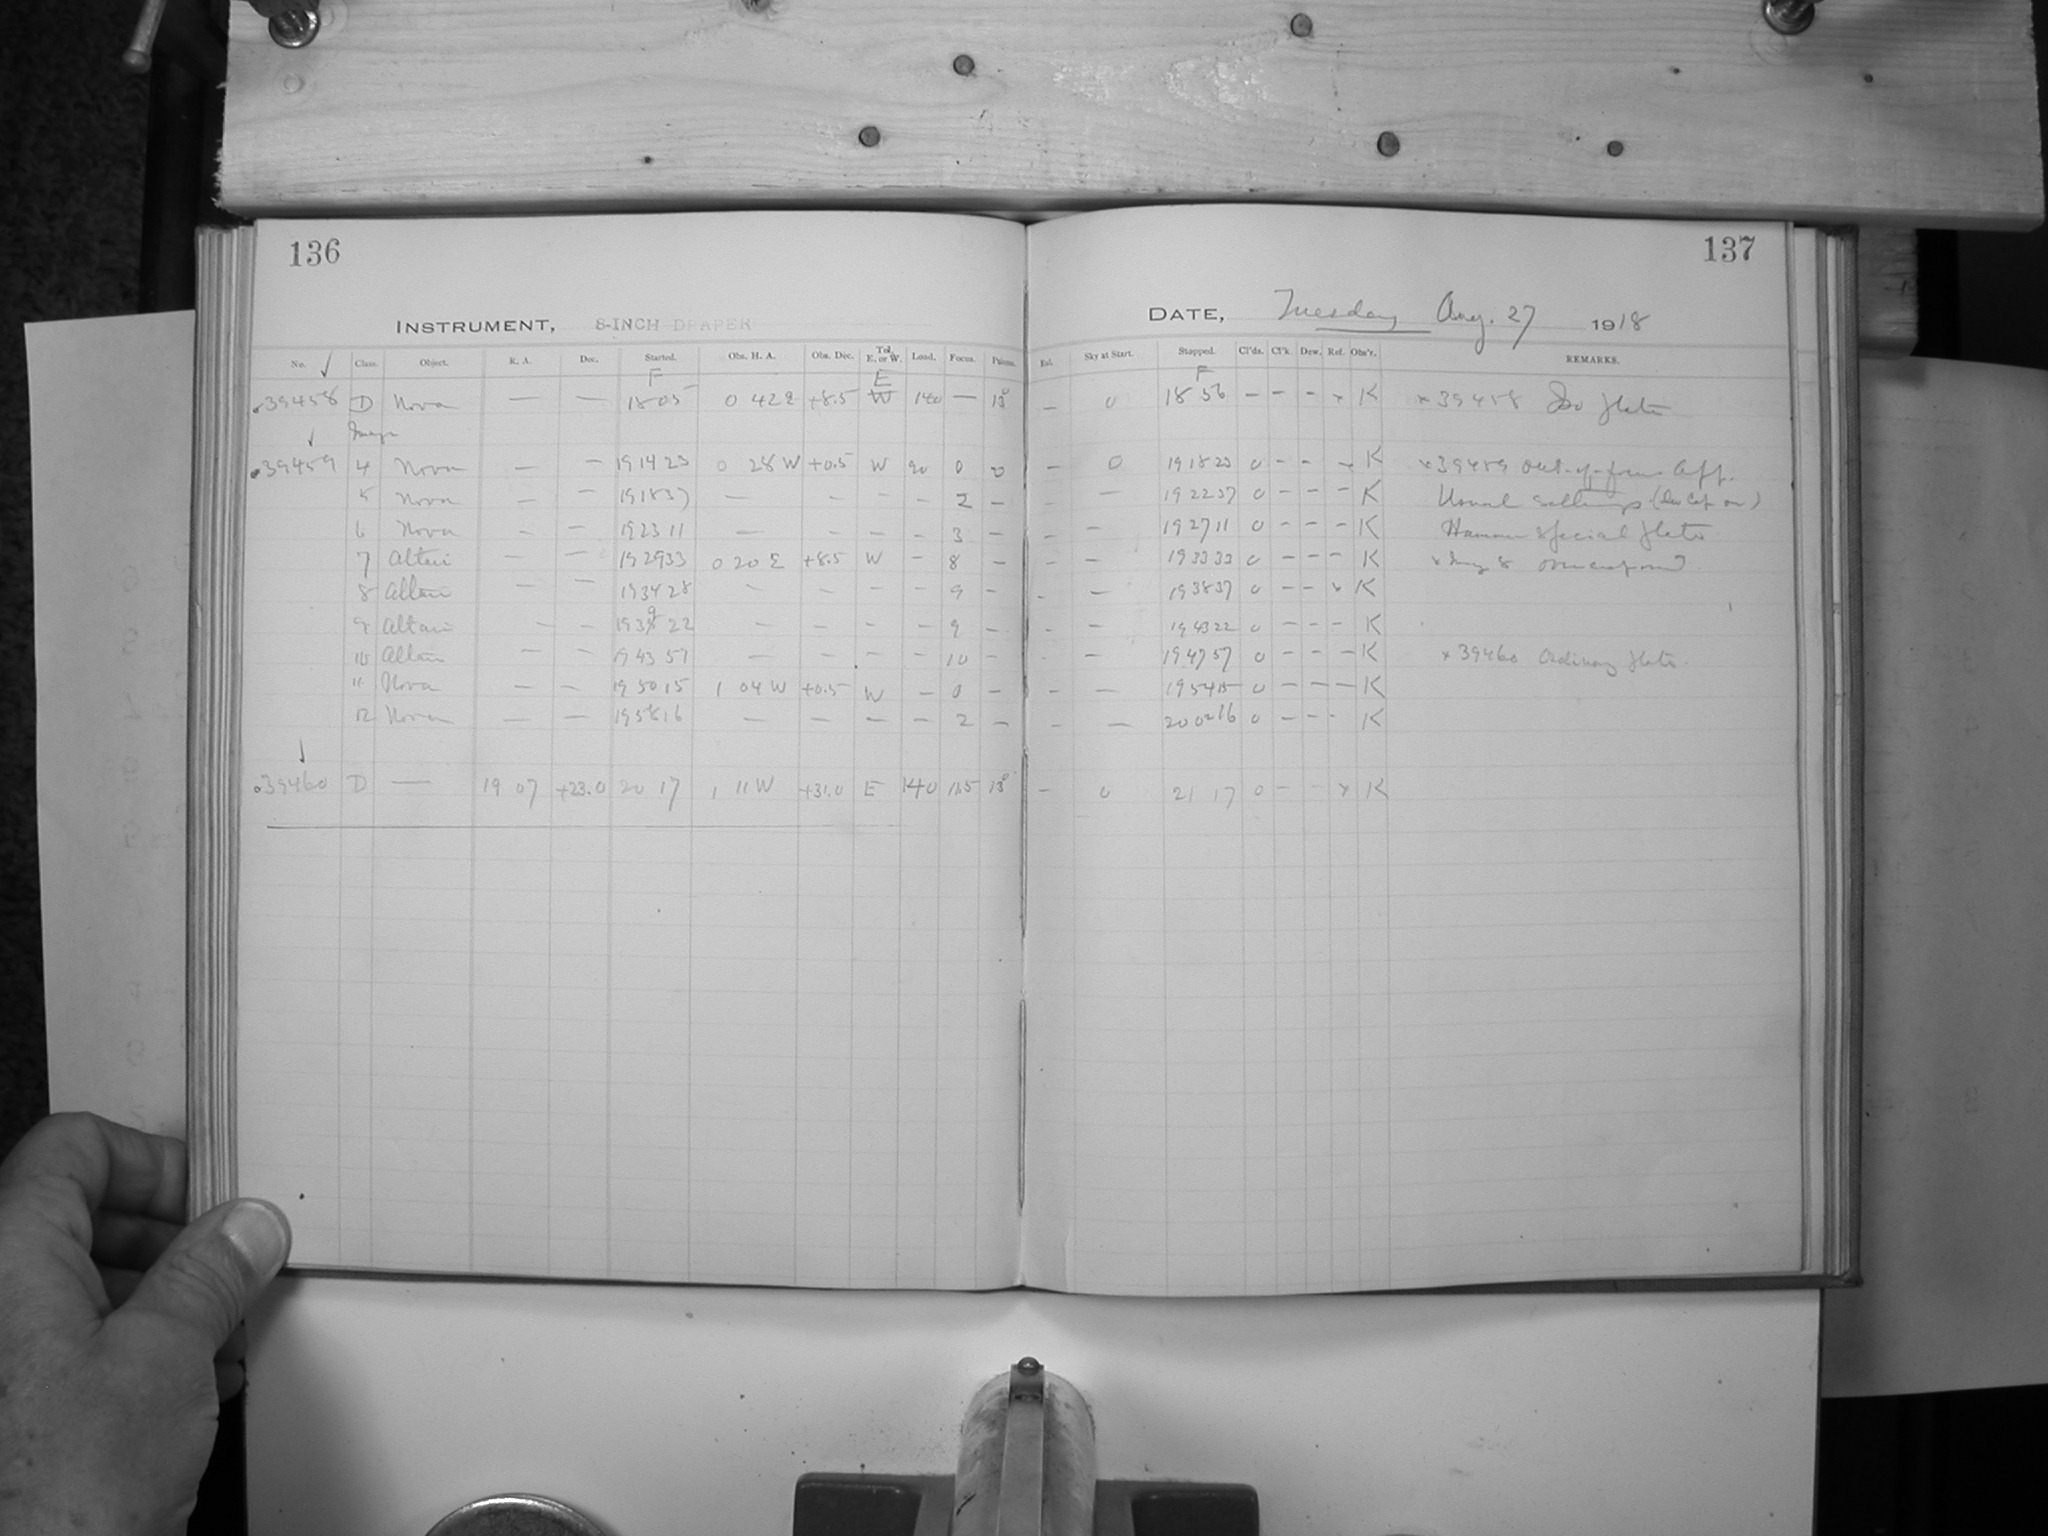 136
137
INSTRUMENT, 8-INCH DRAPER
DATE, Tuesday Aug. 27 1918
No. Class. Object. R. A. Dec. Started. Obs. H. A. Obs. Dec. Tel. E. or W. Load. Focus. Prisms. Exl. Sky at Start. Stopped. Cl'ds. Cl'k. Dew. Ref. Obs'r. REMARKS.
F E F
39458 D Nova — — 18 05 0 42 E +8.5 W 140 — 13° — 0 18 56 — — — x K x 39458 Iso plate
Image
39459 4 Nova — — 19 14 23 0 28 W +0.5 W 90 0 0 — 0 19 18 23 0 — — x K x 39459 Out-of-focus App.
5 Nova — — 19 18 37 — — — — 2 — — — 19 22 37 0 — — — K Usual settings
6 Nova — — 19 23 11 — — — — 3 — — — 19 27 11 0 — — — K Hammer Special plate
7 Altair — — 19 29 33 0 20 E +8.5 W — 8 — — — 19 33 33 0 — — — K x Img 8 overexposed
8 Altair — — 19 34 28 — — — — 9 — — — 19 38 37 0 — — x K
9 Altair — — 19 39 22 — — — — 9 — — — 19 43 22 0 — — — K
10 Altair — — 19 43 57 — — — — 10 — — — 19 47 57 0 — — — K x 39460 Ordinary plate
11 Nova — — 19 50 15 1 04 W +0.5 W — 0 — — — 19 54 15 0 — — — K
12 Nova — — 19 58 16 — — — — 2 — — — 20 02 16 0 — — — K
39460 D — 19 07 +23.0 20 17 1 11 W +31.0 E 140 11.5 13° — 0 21 17 0 — — x K